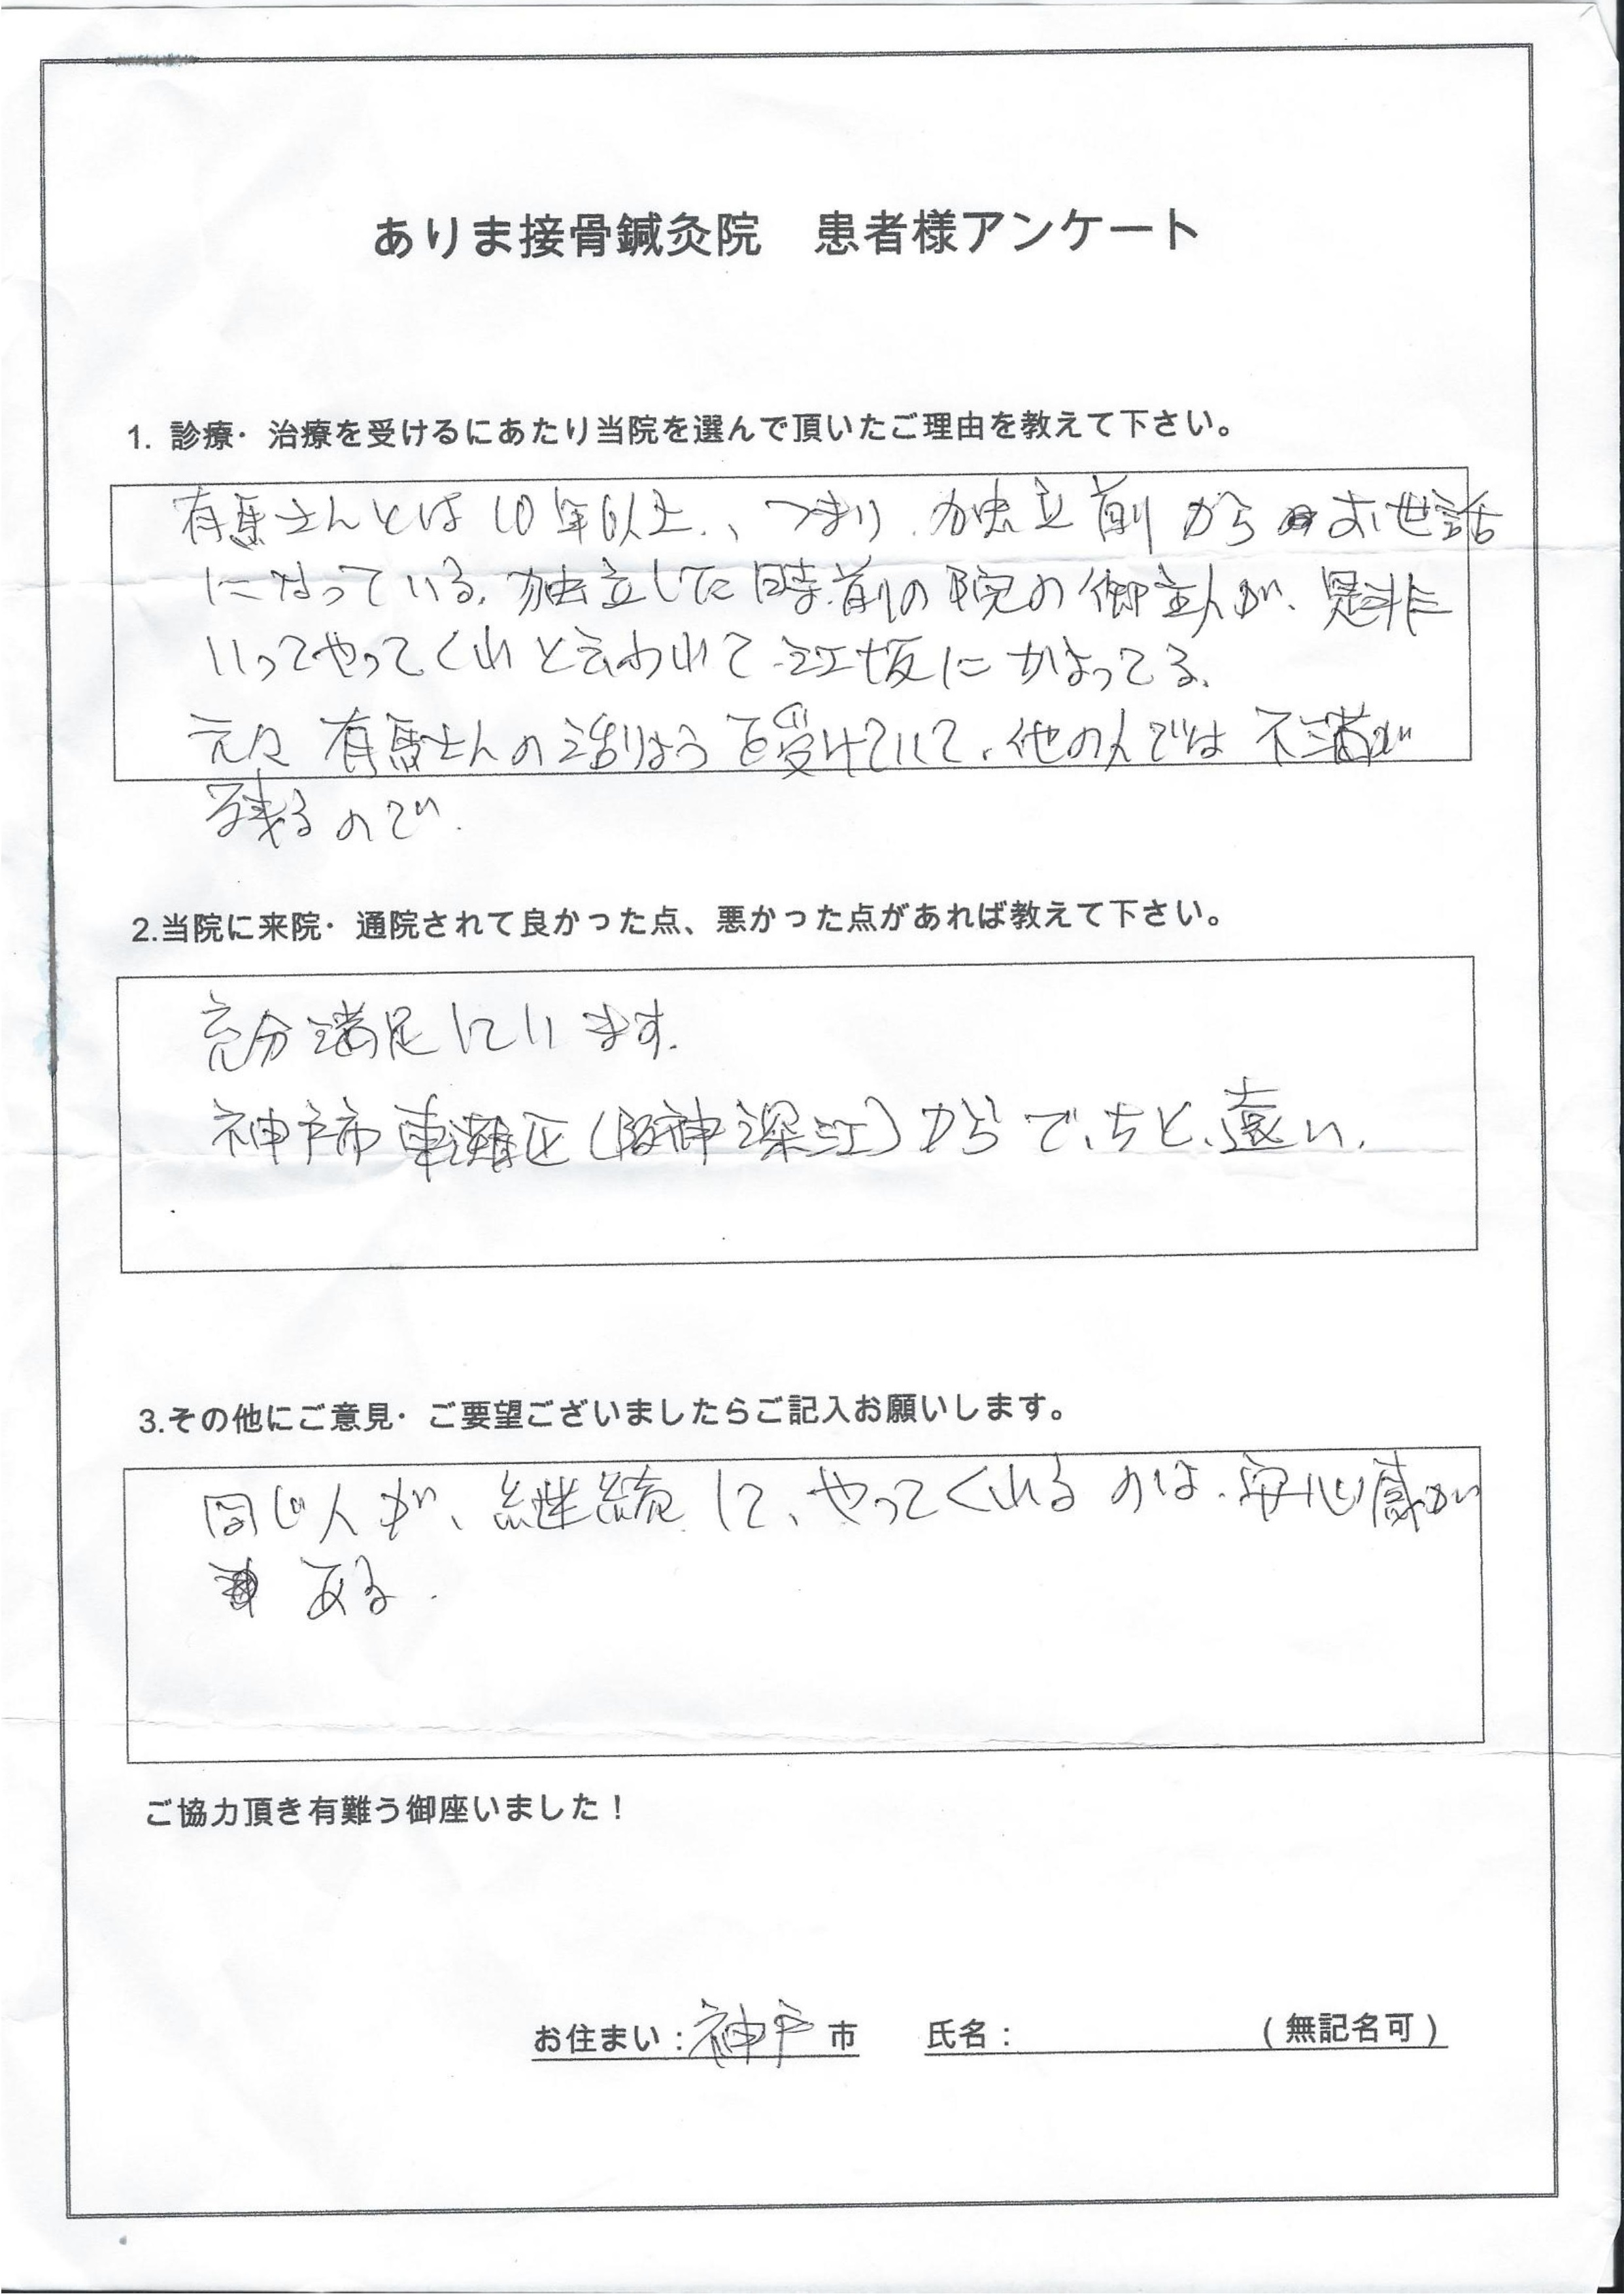 ありま接骨鍼灸院　患者様アンケート
1. 診療・治療を受けるにあたり当院を選んで頂いたご理由を教えて下さい。
有馬さんとは10年以上、つまり、独立前からお世話
になっている。独立した時、前の院の御主人が、是非
いってやってくれと云われて江坂にかよってる。
元々有馬さんの治りょうを受けていて、他の人では不満が
残るので.
2.当院に来院・通院されて良かった点、悪かった点があれば教えて下さい。
充分満足しています.
神戸市東灘区(阪神深江)からで、ちと、遠い.
3.その他にご意見・ご要望ございましたらご記入お願いします。
同じ人が、継続して、やってくれるのは、安心感が
ある.
ご協力頂き有難う御座いました！
お住まい：神戸市　氏名：　（無記名可）